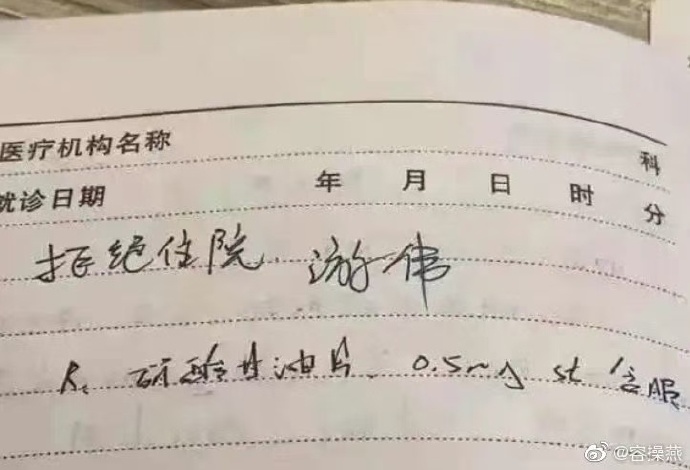 医疗机构名称 科
就诊日期 年 月 日 时 分
拒绝住院 游伟
R. 硝酸甘油片 0.5mg st 含服
@容操燕